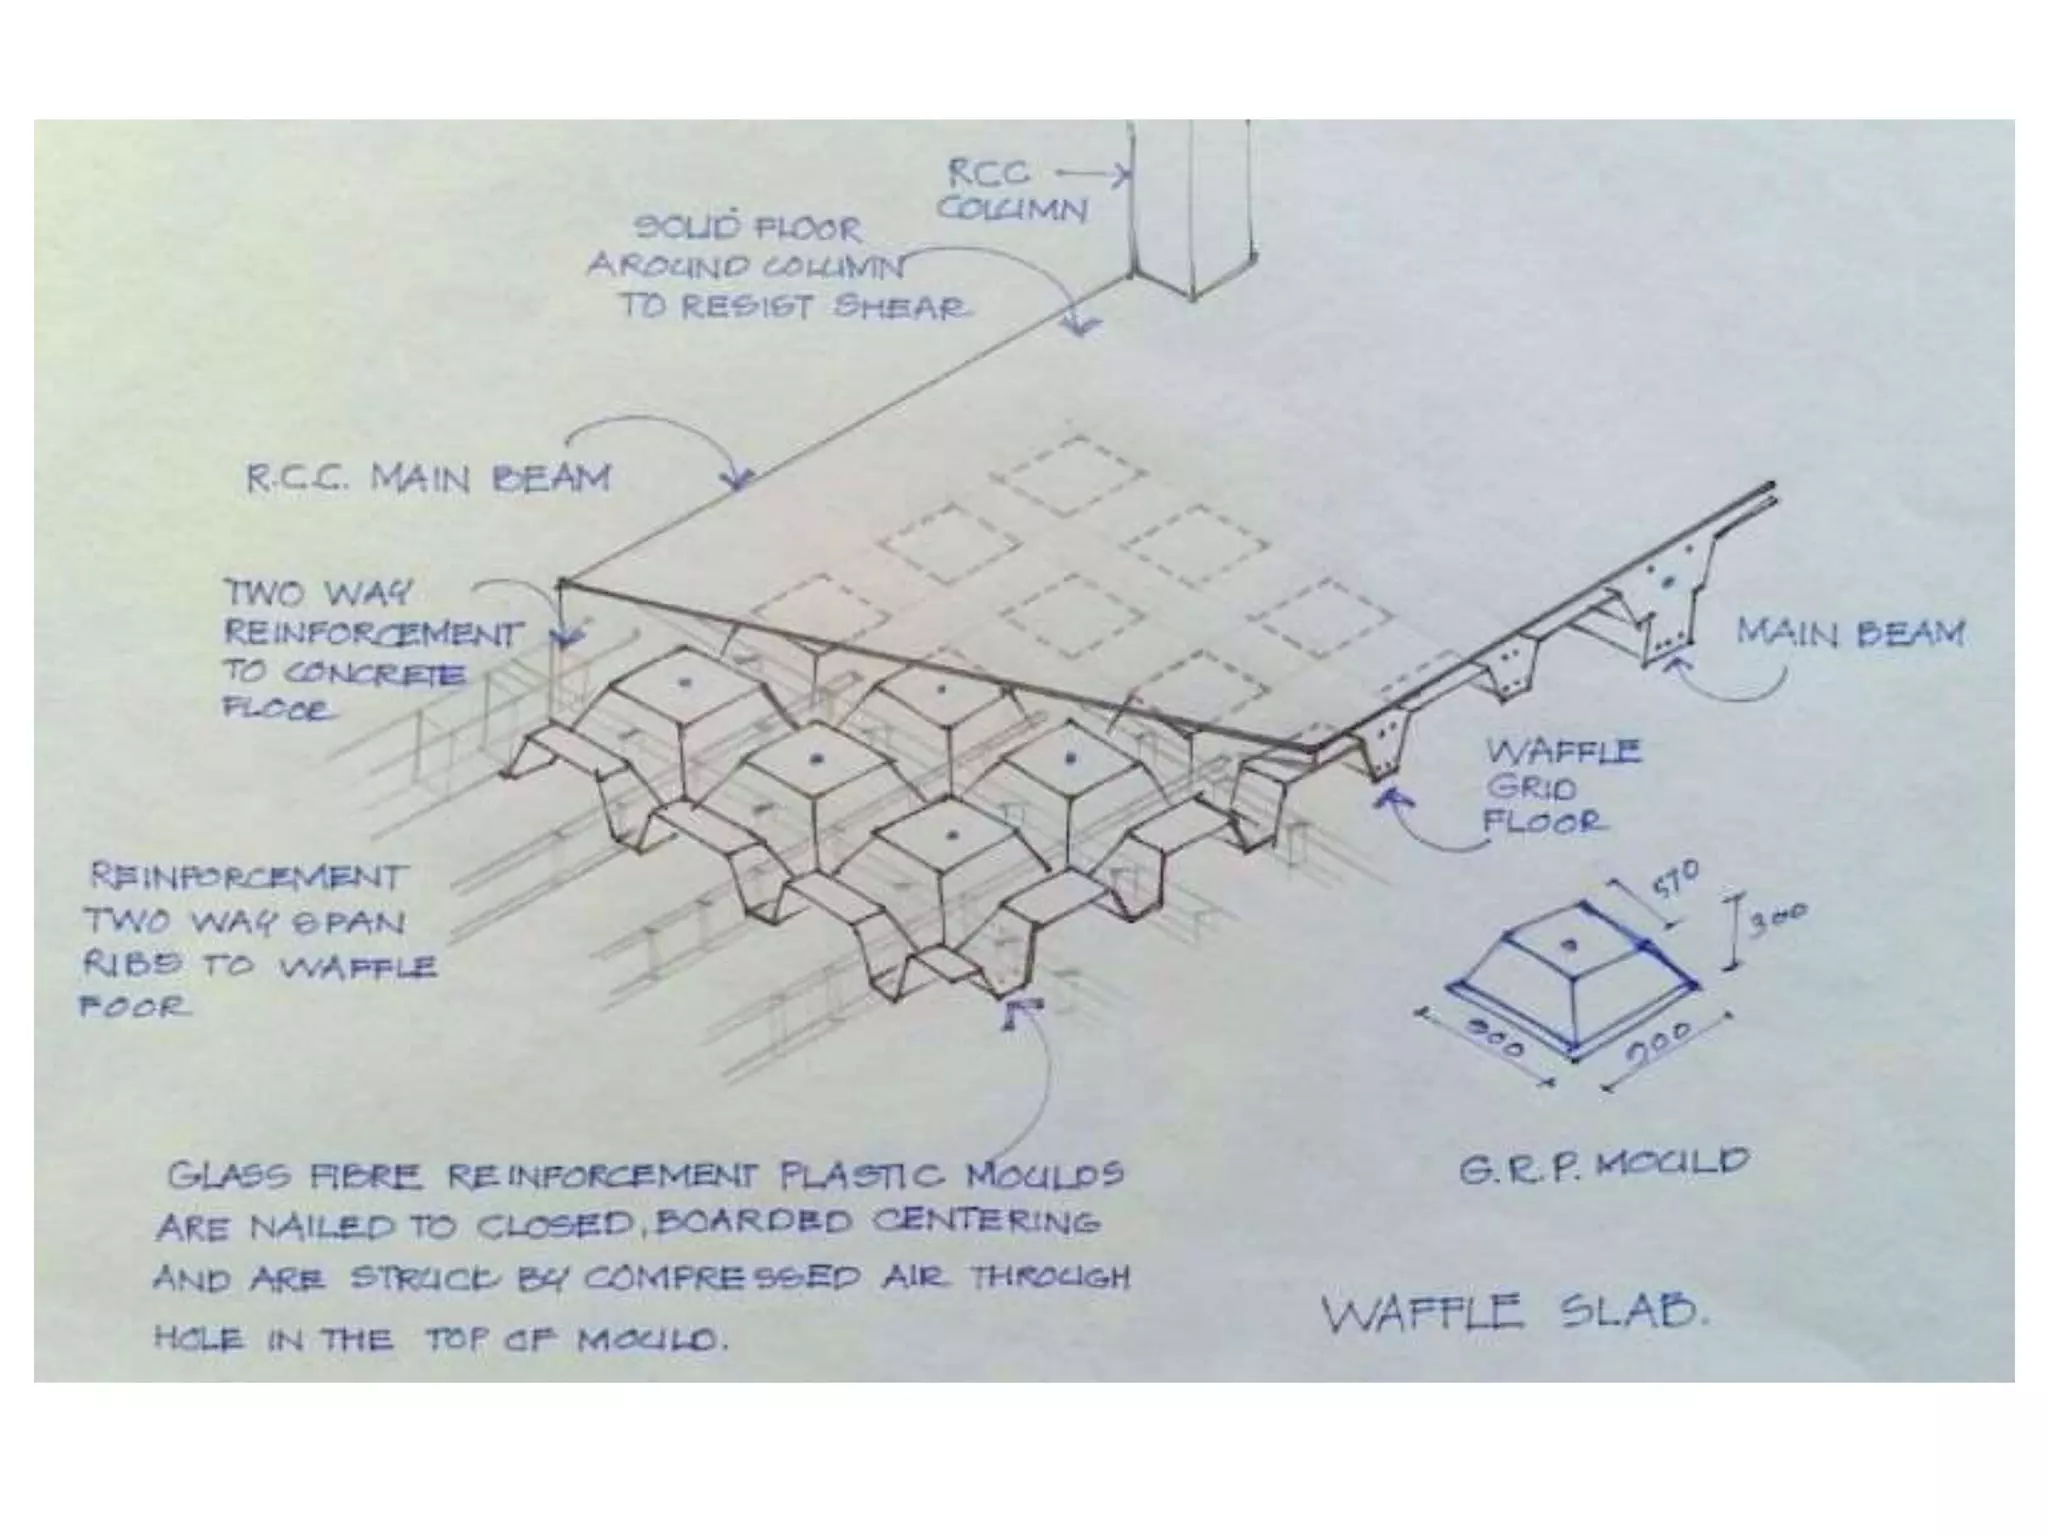 RCC
COLUMN
SOLID FLOOR
AROUND COLUMN
TO RESIST SHEAR
R.C.C. MAIN BEAM
TWO WAY
REINFORCEMENT
TO CONCRETE
FLOOR
MAIN BEAM
WAFFLE
GRID
FLOOR
REINFORCEMENT
TWO WAY SPAN
RIBS TO WAFFLE
FOOR
570
300
900
900
G.R.P. MOULD
GLASS FIBRE REINFORCEMENT PLASTIC MOULDS
ARE NAILED TO CLOSED, BOARDED CENTERING
AND ARE STRUCK BY COMPRESSED AIR THROUGH
HOLE IN THE TOP OF MOULD.
WAFFLE SLAB.